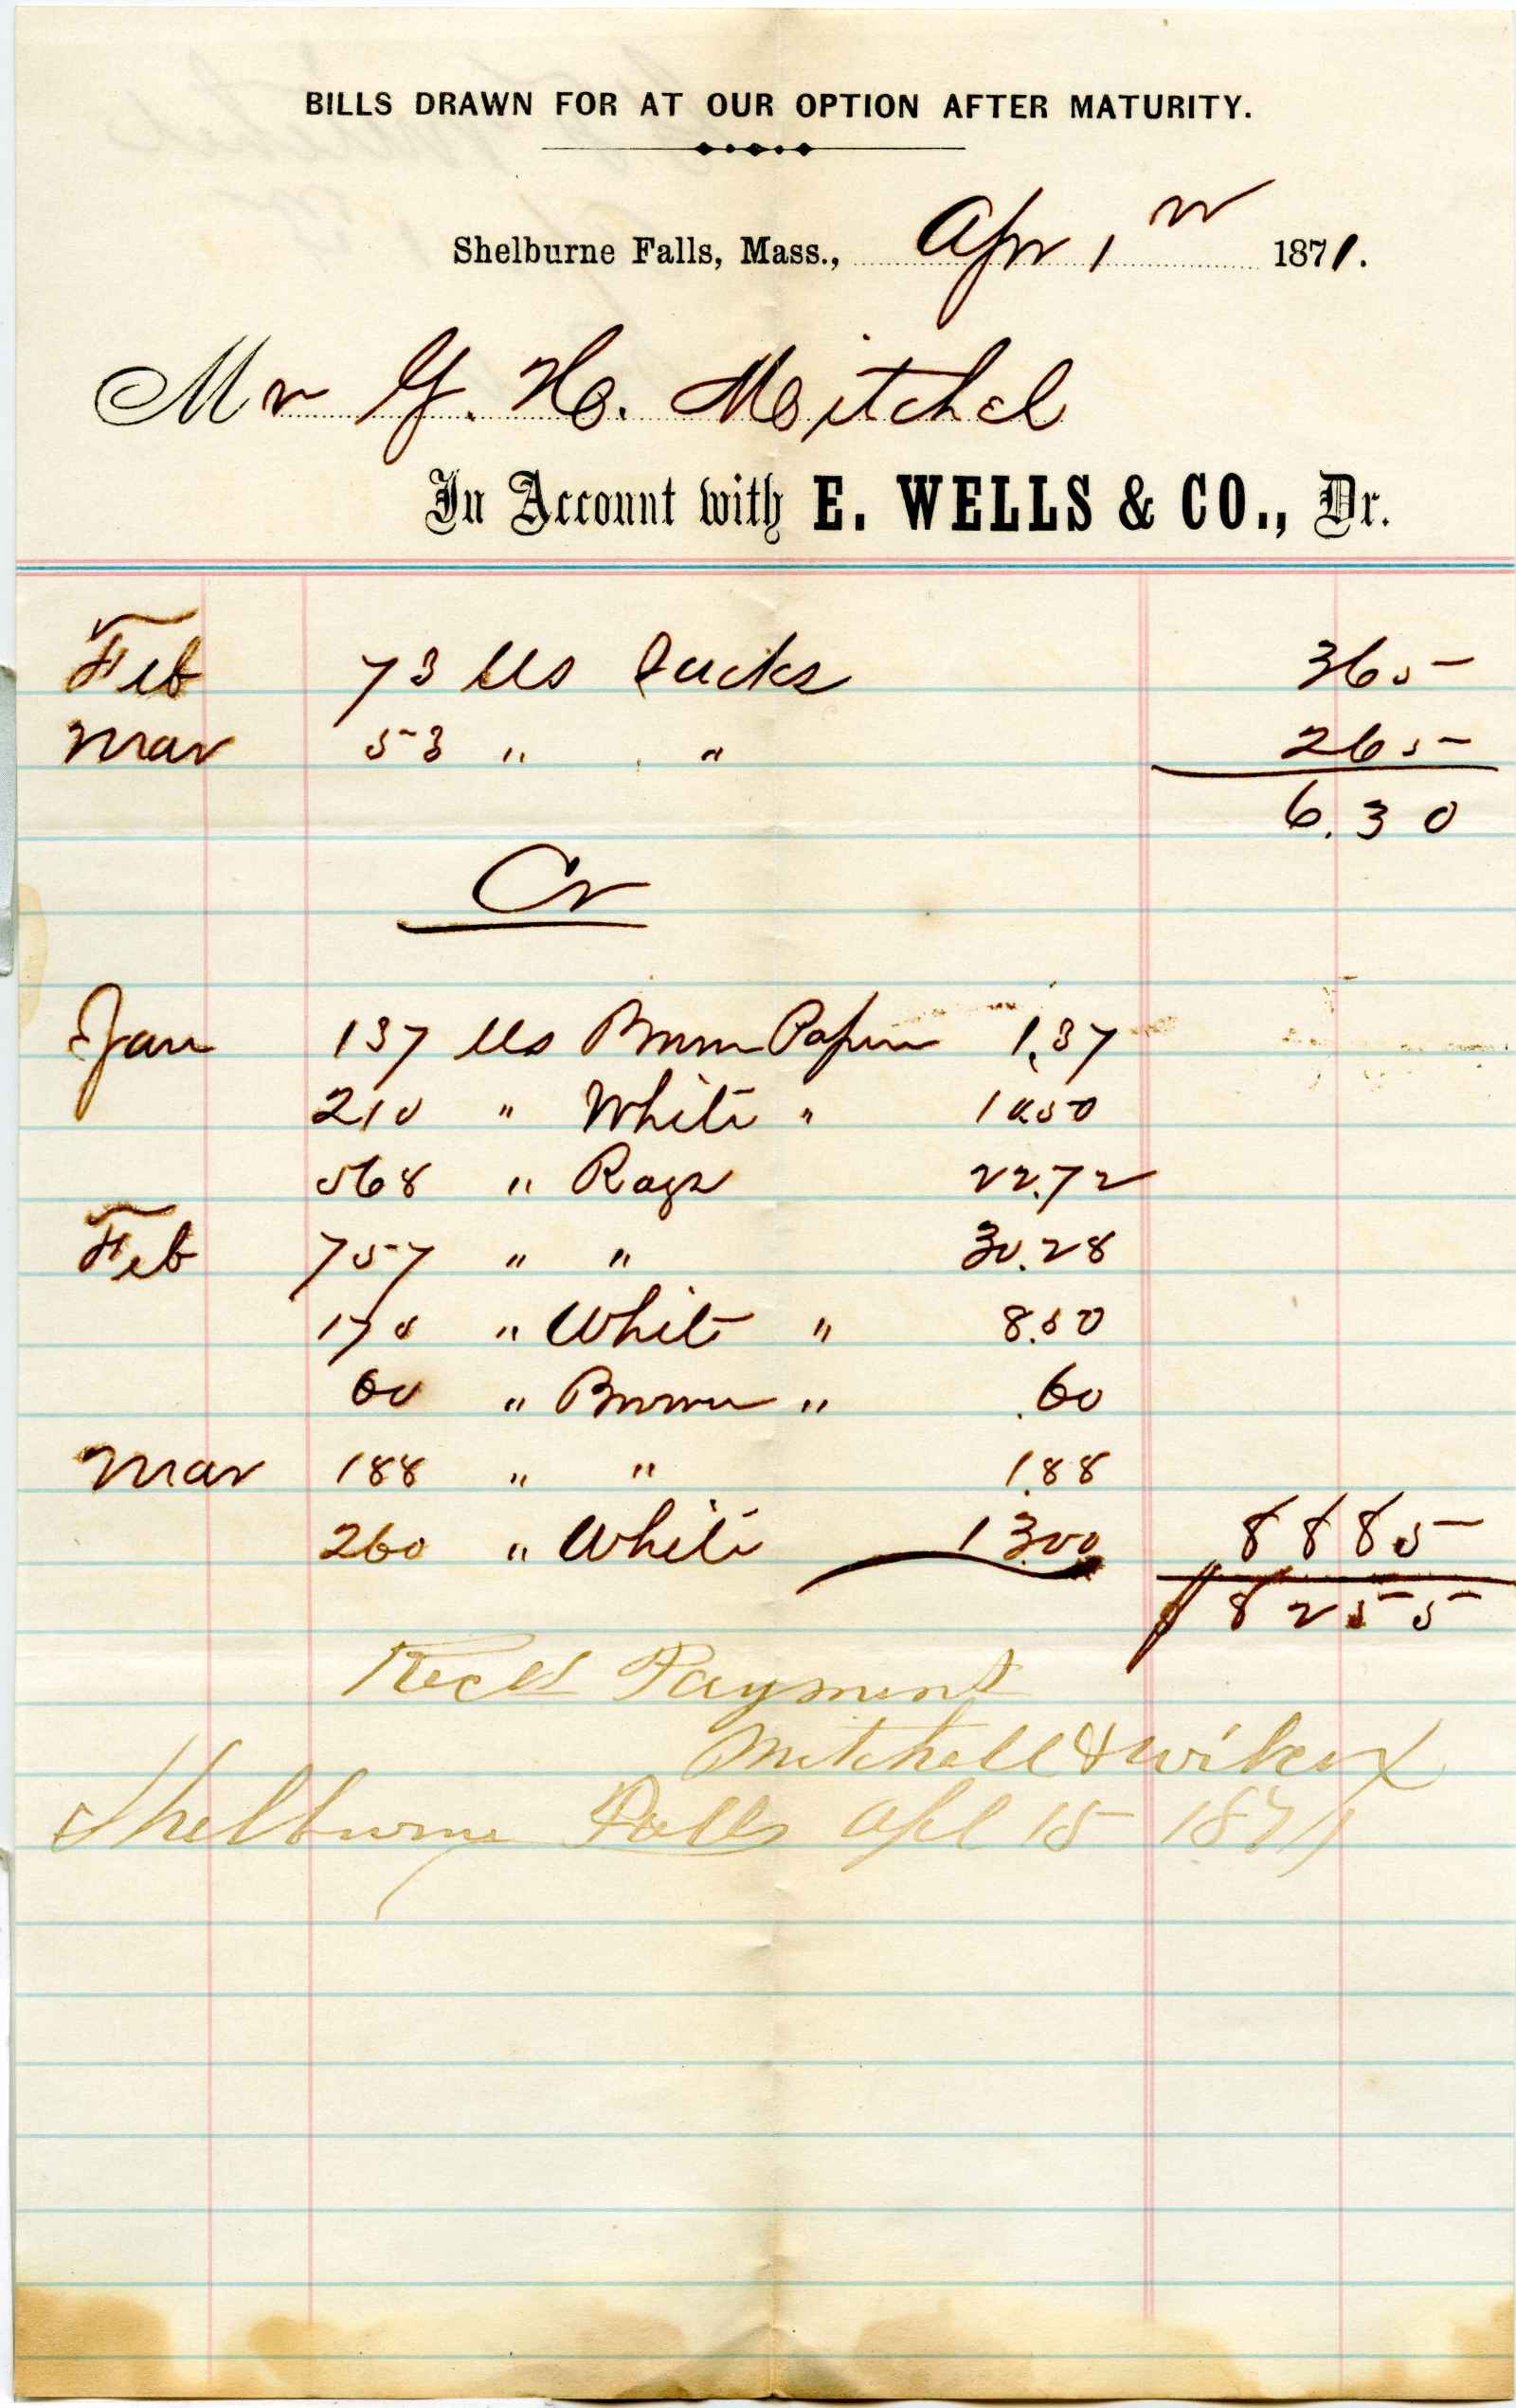 BILLS DRAWN FOR AT OUR OPTION AFTER MATURITY.
Shelburne Falls, Mass., Apr 1 1871.
Mr G. H. Mitchel
In Account with E. WELLS & CO., Dr.
Feb 73 lbs Sacks 3 65
Mar 53 " " 2 65
6.30
Cr
Jan 137 lbs Brown Paper 1.37
210 " White " 10.50
568 " Rags 22.72
Feb 757 " " 30.28
170 " White " 8.50
60 " Brown " .60
Mar 188 " " 1.88
260 " White 13.00 88 85
$ 82 55
Recd Payment
Mitchell & Wilcox
Shelburne Falls Apl 15 1871